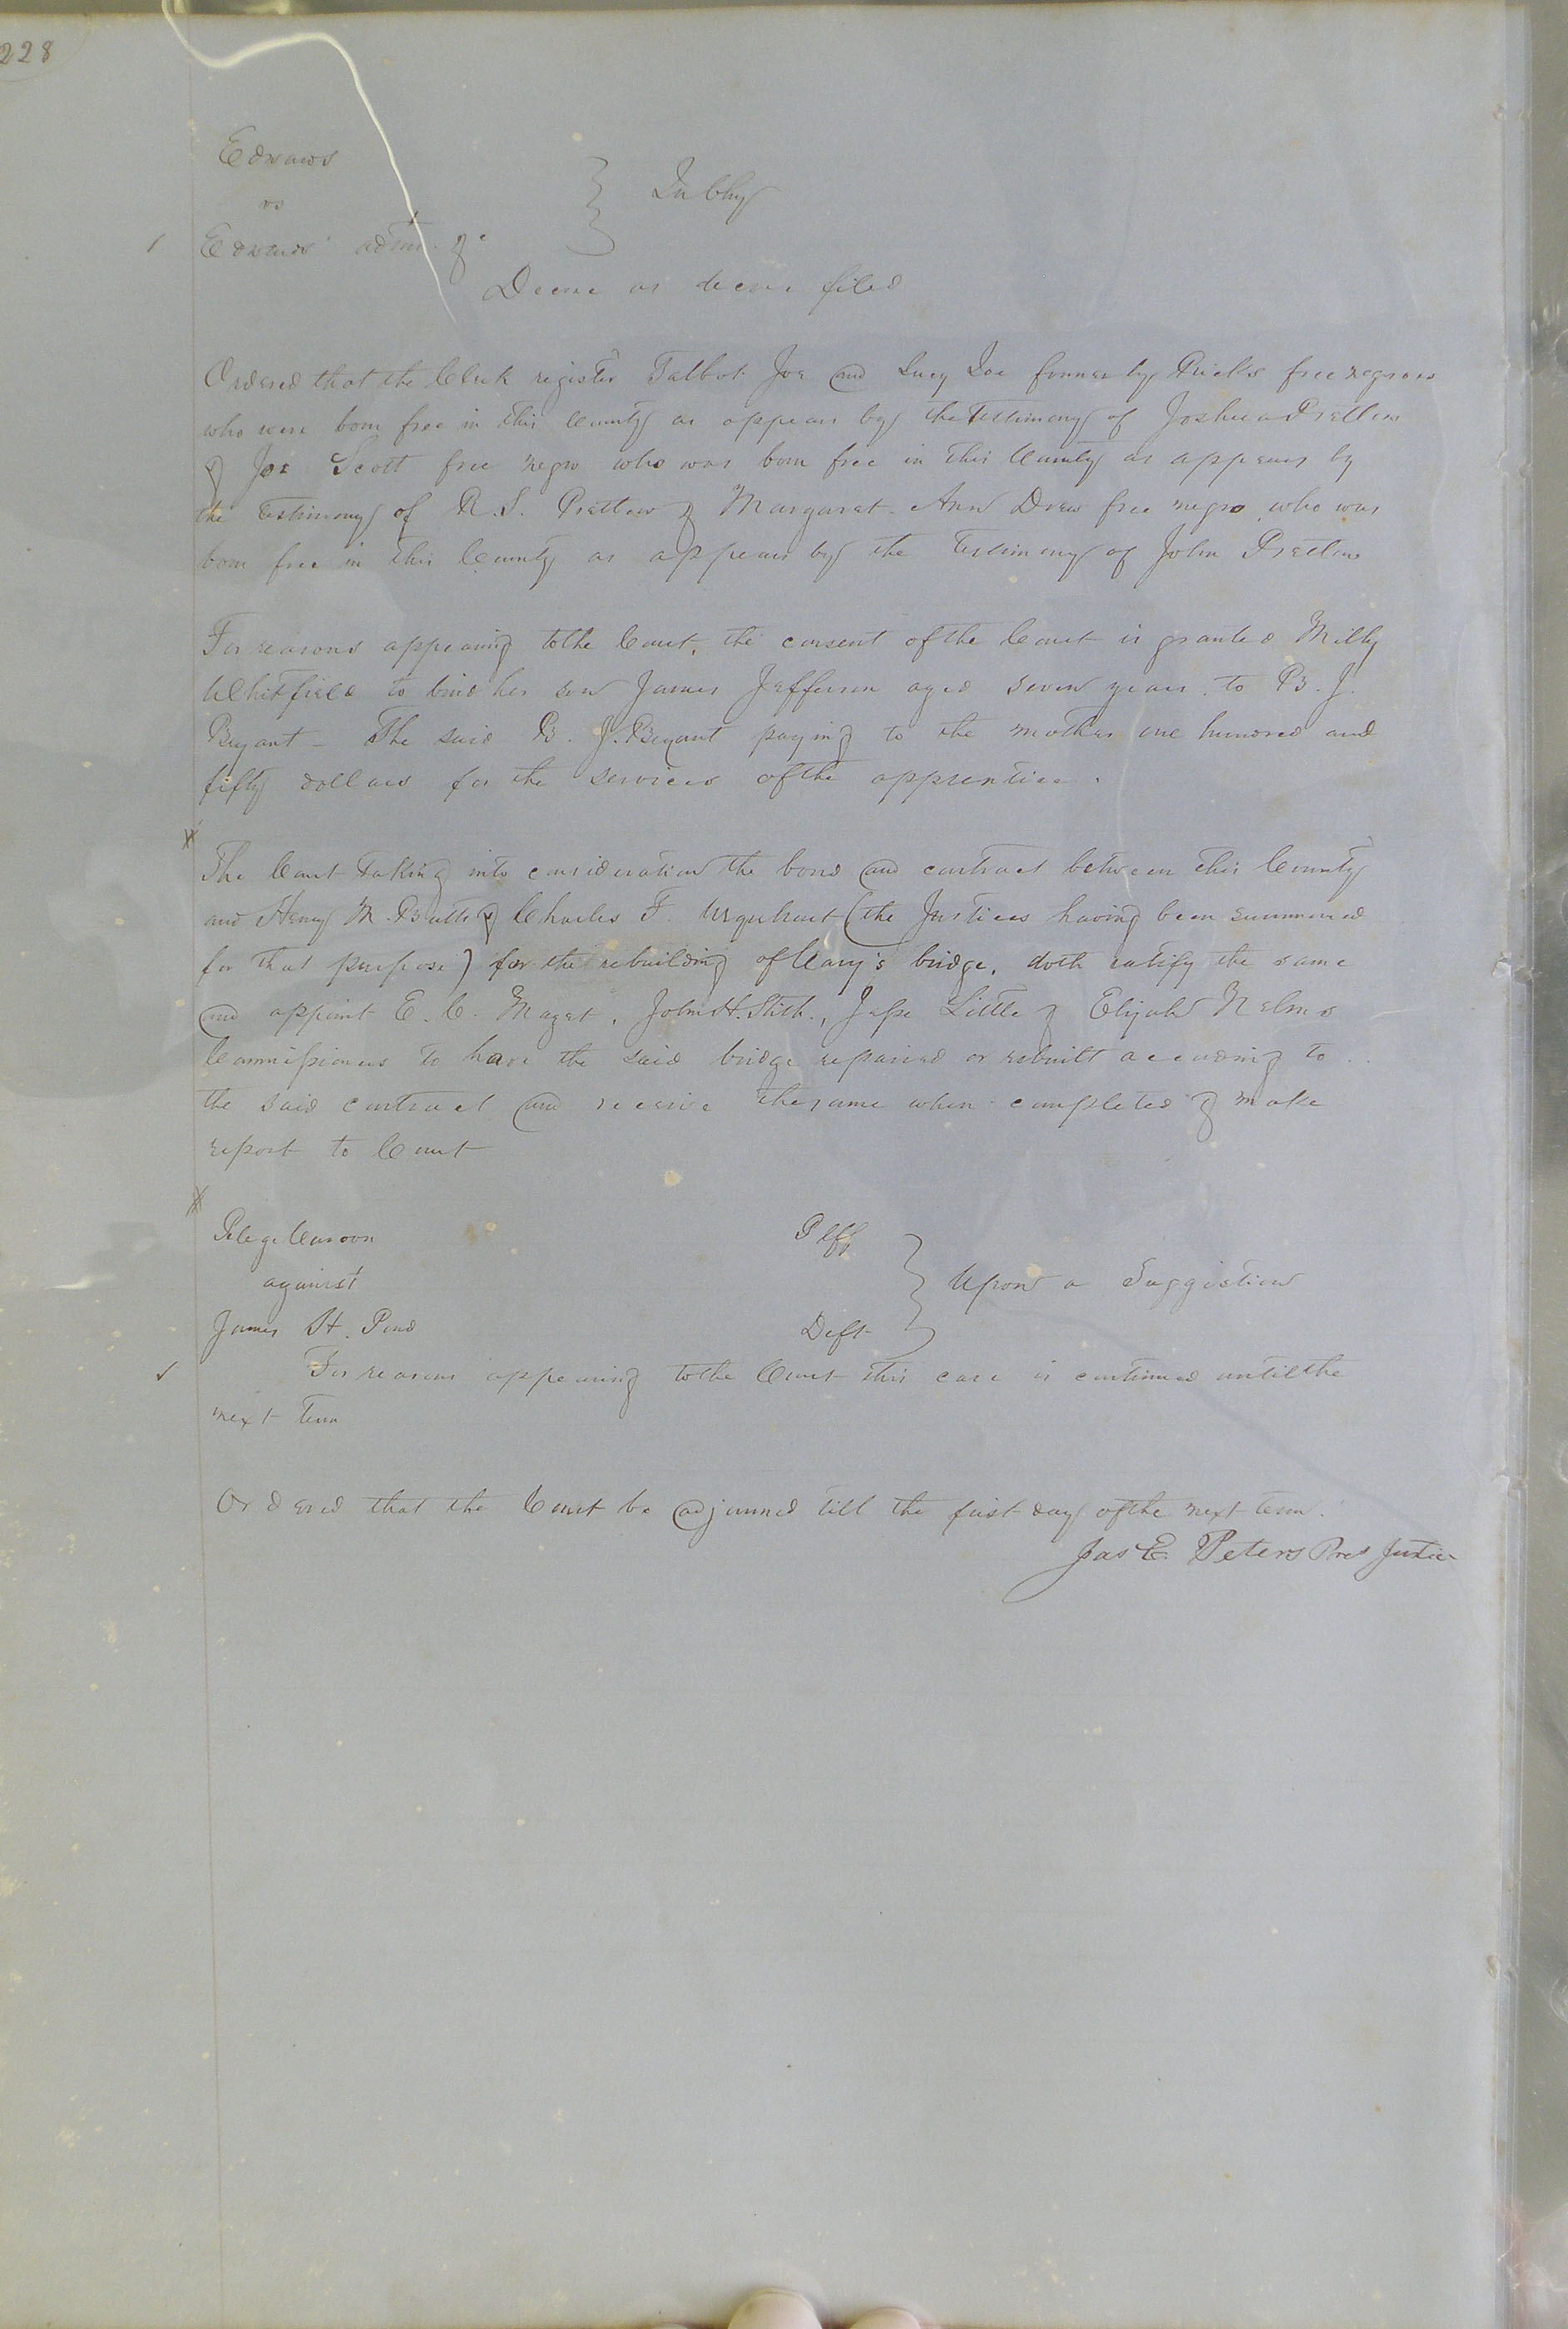 228
Edwards
vs
Edwards' admr. &c
In Chy
Decree as decree filed
Ordered that the Clerk register Talbot Joe and Lucy Joe formerly Ricks free negroes
who were born free in this County as appears by the testimony of Joshua Pretlow
& Joe Scott free negro who was born free in this County as appears by
the testimony of R. S. Pretlow & Margaret Ann Drew free negro who was
born free in this County as appears by the testimony of John Pretlow
For reasons appearing to the Court, the consent of the Court is granted Milly
Whitfield to bind her son James Jefferson aged seven years to B. J.
Bryant - The said B. J. Bryant paying to the mother one hundred and
fifty dollars for the services of the apprentice.
The Court taking into consideration the bond and contract between this County
and Henry M. Butts & Charles F. Urquhart (the Justices having been summoned
for that purpose) for the rebuilding of Cary's bridge, doth ratify the same
and appoint E. C. Mazet, John H. Stith, Jesse Little & Elijah Nelms
Commissioners to have the said bridge repaired or rebuilt according to
the said contract and receive the same when completed & make
report to Court
Plff
against
James H. Pond
Deft
Upon a Suggestion
For reasons appearing to the Court this case is continued until the
next term
Ordered that the Court be adjourned till the first day of the next term.
Jas E. Peters Pres Justice